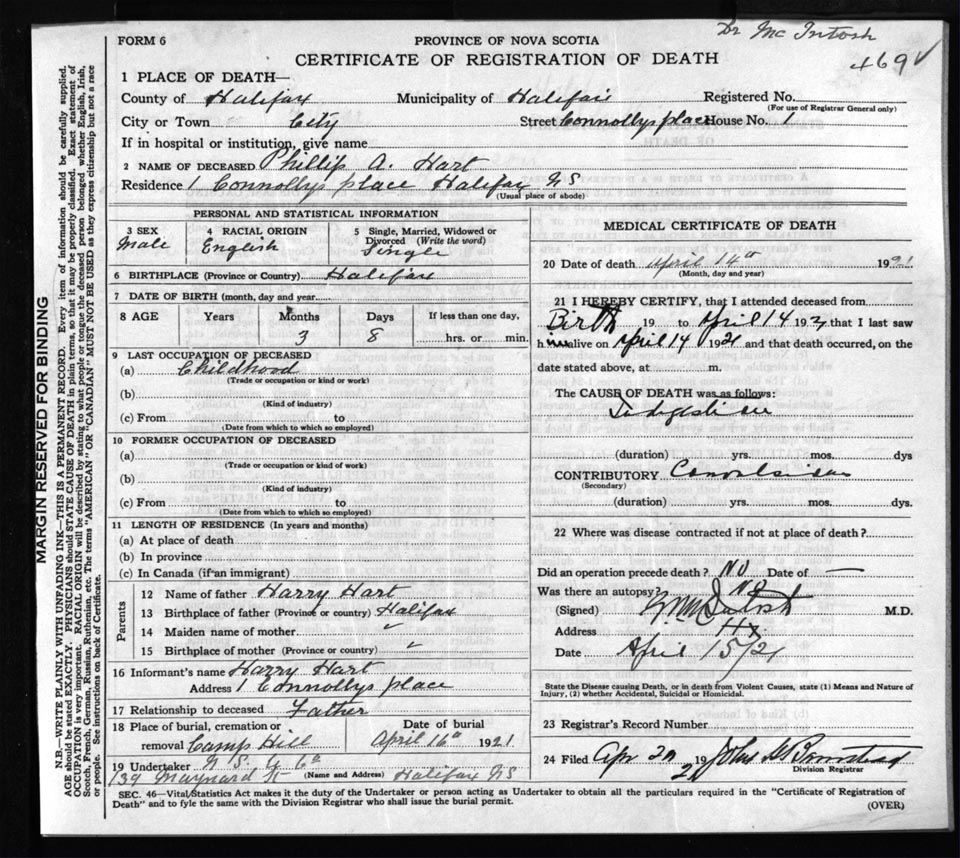 Dr McIntosh
469
FORM 6
PROVINCE OF NOVA SCOTIA
CERTIFICATE OF REGISTRATION OF DEATH
1 PLACE OF DEATH—
County of Halifax Municipality of Halifax Registered No.
(For use of Registrar General only)
City or Town City Street Connollys place House No. 1
If in hospital or institution, give name
2 NAME OF DECEASED Phillip A. Hart
Residence 1 Connollys place Halifax NS
(Usual place of abode)
PERSONAL AND STATISTICAL INFORMATION
3 SEX 4 RACIAL ORIGIN 5 Single, Married, Widowed or
Divorced (Write the word)
Male English Single
6 BIRTHPLACE (Province or Country) Halifax
7 DATE OF BIRTH (month, day and year)
8 AGE Years Months Days If less than one day,
3 8 hrs. or min.
9 LAST OCCUPATION OF DECEASED
(a) Childhood
(Trade or occupation or kind or work)
(b)
(Kind of industry)
(c) From to
(Date from which to which so employed)
10 FORMER OCCUPATION OF DECEASED
(a)
(Trade or occupation or kind of work)
(b)
(Kind of industry)
(c) From to
(Date from which to which so employed)
11 LENGTH OF RESIDENCE (In years and months)
(a) At place of death
(b) In province
(c) In Canada (if an immigrant)
Parents
12 Name of father Harry Hart
13 Birthplace of father (Province or country) Halifax
14 Maiden name of mother "
15 Birthplace of mother (Province or country) "
16 Informant's name Harry Hart
Address 1 Connollys place
17 Relationship to deceased Father
18 Place of burial, cremation or Date of burial
removal Camp Hill April 16th 1921
19 Undertaker N S U Co
139 Maynard St (Name and Address) Halifax NS
MEDICAL CERTIFICATE OF DEATH
20 Date of death April 14th 1921
(Month, day and year)
21 I HEREBY CERTIFY, that I attended deceased from
Birth 19 to April 14 192 that I last saw
him alive on April 14 1921 and that death occurred, on the
date stated above, at m.
The CAUSE OF DEATH was as follows:
Indigestion
(duration) yrs. mos. dys
CONTRIBUTORY Convulsions
(Secondary)
(duration) yrs. mos. dys.
22 Where was disease contracted if not at place of death?
Did an operation precede death? No Date of —
Was there an autopsy? No
(Signed) McIntosh M.D.
Address Hx.
Date April 15/21
State the Disease causing Death, or in death from Violent Causes, state (1) Means and Nature of
Injury, (2) whether Accidental, Suicidal or Homicidal.
23 Registrar's Record Number
24 Filed Apr 20 1921 John
Division Registrar
SEC. 46—Vital Statistics Act makes it the duty of the Undertaker or person acting as Undertaker to obtain all the particulars required in the "Certificate of Registration of
Death" and to fyle the same with the Division Registrar who shall issue the burial permit.
(OVER)
MARGIN RESERVED FOR BINDING
N.B.—WRITE PLAINLY WITH UNFADING INK—THIS IS A PERMANENT RECORD. Every item of information should be carefully supplied.
AGE should be stated EXACTLY. PHYSICIANS should STATE CAUSE OF DEATH in plain terms, so that it may be properly classified. Exact statement of
OCCUPATION is very important. RACIAL ORIGIN will be described by stating to what people or tongue the deceased person belonged whether English, Irish,
Scotch, French, German, Russian, Ruthenian, etc. The terms "AMERICAN" OR "CANADIAN" MUST NOT BE USED as they express citizenship but not a race
or people. See instructions on back of Certificate.